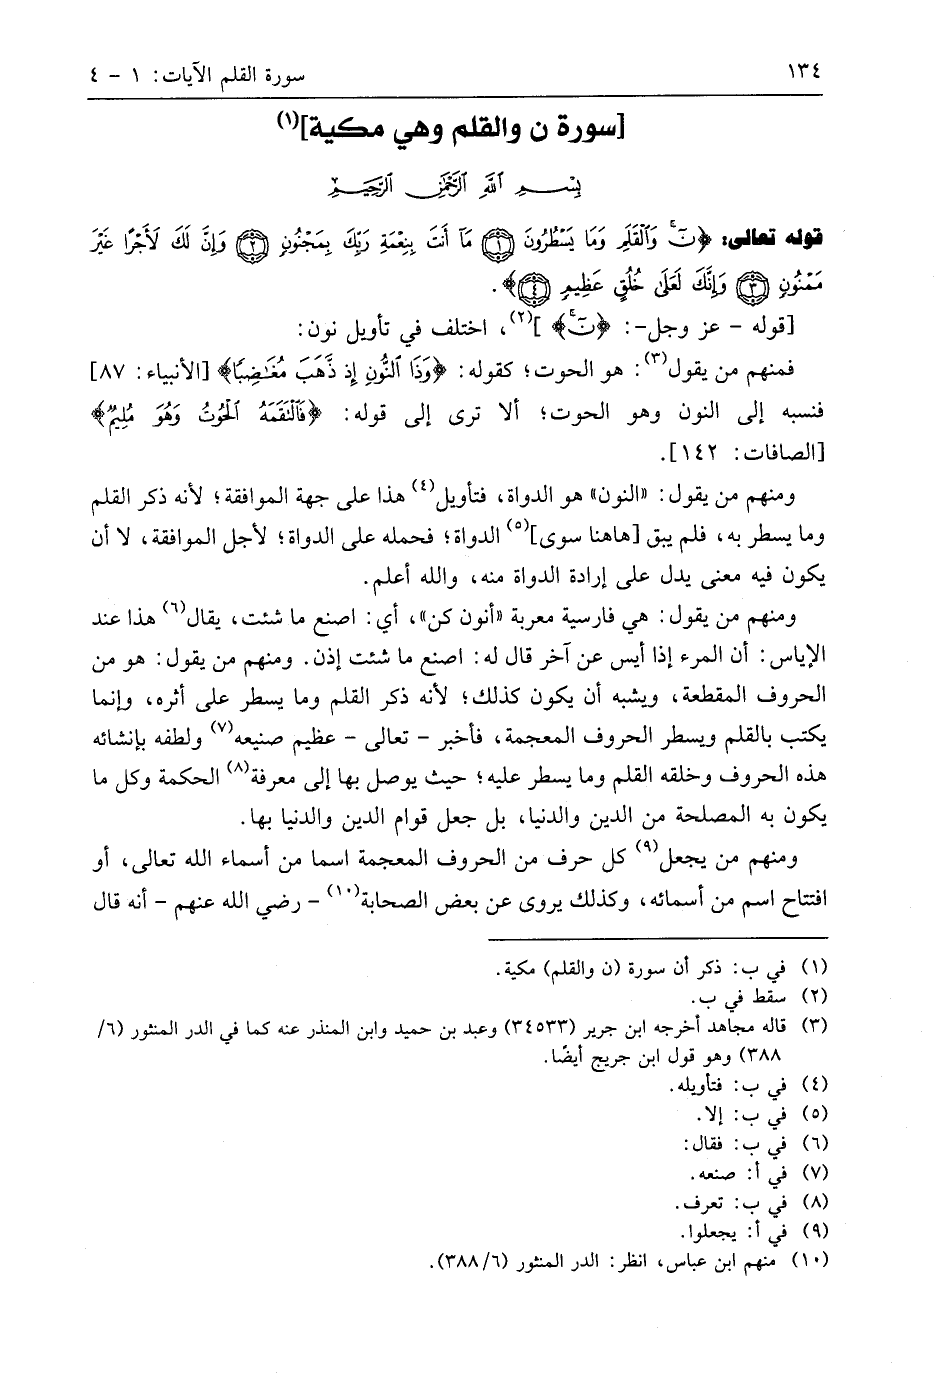 ١٣٤
سورة القلم الآيات: ١ - ٤
[سورة ن والقلم وهي مكية](١)
بِسْمِ اللَّهِ الرَّحْمَٰنِ الرَّحِيمِ
قوله تعالى: ﴿نٓ وَٱلْقَلَمِ وَمَا يَسْطُرُونَ ۝١ مَآ أَنتَ بِنِعْمَةِ رَبِّكَ بِمَجْنُونٍ ۝٢ وَإِنَّ لَكَ لَأَجْرًا غَيْرَ
مَمْنُونٍ ۝٣ وَإِنَّكَ لَعَلَىٰ خُلُقٍ عَظِيمٍ ۝٤﴾.
[قوله - عز وجل-: ﴿نٓ﴾ ](٢)، اختلف في تأويل نون:
فمنهم من يقول(٣): هو الحوت؛ كقوله: ﴿وَذَا ٱلنُّونِ إِذ ذَّهَبَ مُغَٰضِبًا﴾ [الأنبياء: ٨٧]
فنسبه إلى النون وهو الحوت؛ ألا ترى إلى قوله: ﴿فَٱلْتَقَمَهُ ٱلْحُوتُ وَهُوَ مُلِيمٌ﴾
[الصافات: ١٤٢].
ومنهم من يقول: «النون» هو الدواة، فتأويل(٤) هذا على جهة الموافقة؛ لأنه ذكر القلم
وما يسطر به، فلم يبق [هاهنا سوى](٥) الدواة؛ فحمله على الدواة؛ لأجل الموافقة، لا أن
يكون فيه معنى يدل على إرادة الدواة منه، والله أعلم.
ومنهم من يقول: هي فارسية معربة «أنون كن»، أي: اصنع ما شئت، يقال(٦) هذا عند
الإياس: أن المرء إذا أيس عن آخر قال له: اصنع ما شئت إذن. ومنهم من يقول: هو من
الحروف المقطعة، ويشبه أن يكون كذلك؛ لأنه ذكر القلم وما يسطر على أثره، وإنما
يكتب بالقلم ويسطر الحروف المعجمة، فأخبر - تعالى - عظيم صنيعه(٧) ولطفه بإنشائه
هذه الحروف وخلقه القلم وما يسطر عليه؛ حيث يوصل بها إلى معرفة(٨) الحكمة وكل ما
يكون به المصلحة من الدين والدنيا، بل جعل قوام الدين والدنيا بها.
ومنهم من يجعل(٩) كل حرف من الحروف المعجمة اسما من أسماء الله تعالى، أو
افتتاح اسم من أسمائه، وكذلك يروى عن بعض الصحابة(١٠) - رضي الله عنهم - أنه قال
(١) في ب: ذكر أن سورة (ن والقلم) مكية.
(٢) سقط في ب.
(٣) قاله مجاهد أخرجه ابن جرير (٣٤٥٣٣) وعبد بن حميد وابن المنذر عنه كما في الدر المنثور (٦/
٣٨٨) وهو قول ابن جريج أيضًا.
(٤) في ب: فتأويله.
(٥) في ب: إلا.
(٦) في ب: فقال:
(٧) في أ: صنعه.
(٨) في ب: تعرف.
(٩) في أ: يجعلوا.
(١٠) منهم ابن عباس، انظر: الدر المنثور (٦/ ٣٨٨).